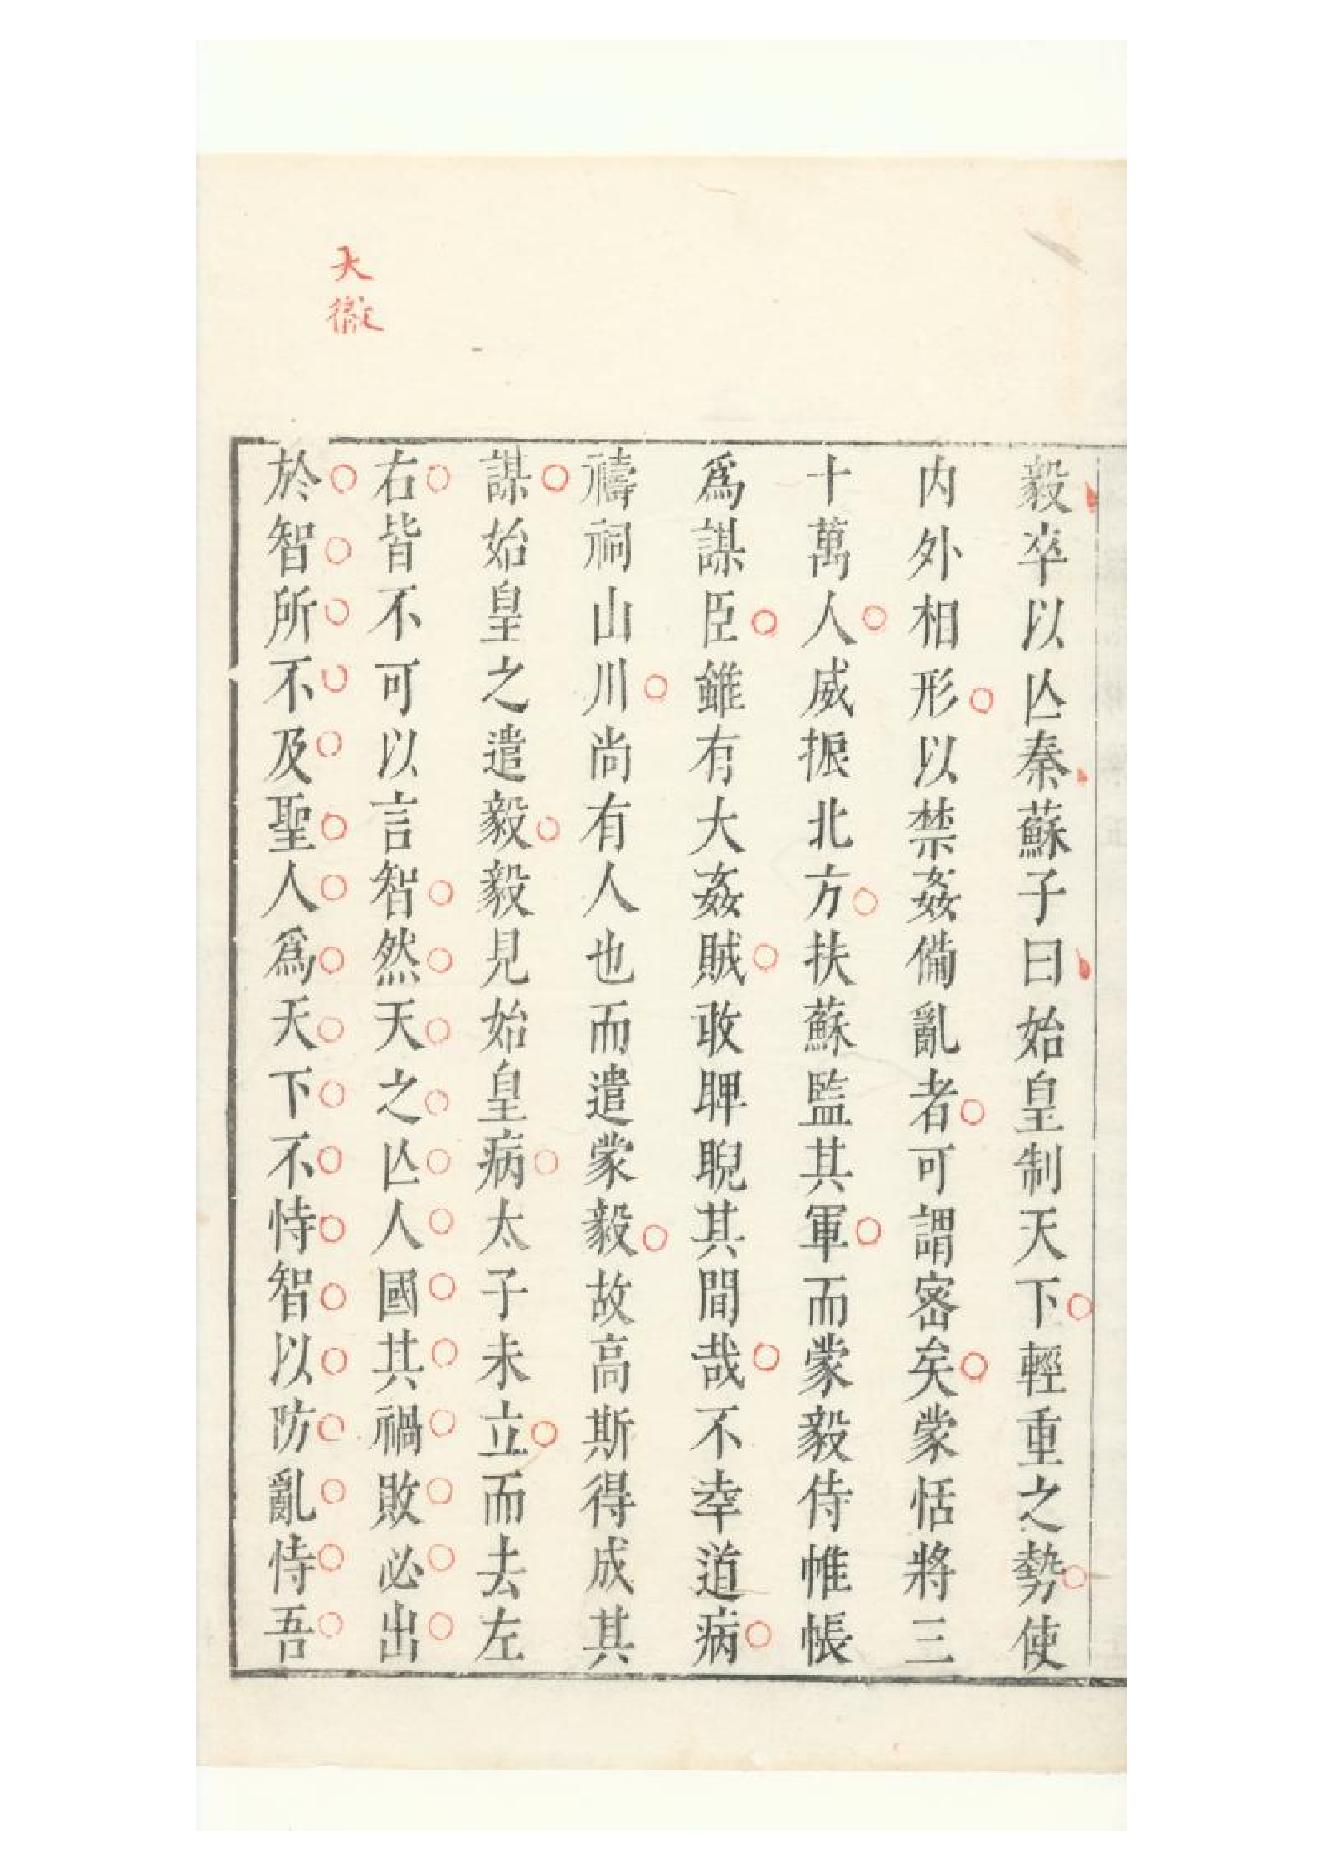 大徹
毅卒以亾秦蘇子曰始皇制天下輕重之勢使
内外相形以禁姦備亂者可謂宻矣蒙恬將三
十萬人威振北方扶蘇監其軍而蒙毅侍帷帳
爲謀臣雖有大姦賊敢睥睨其間哉不幸道病
禱祠山川尚有人也而遣蒙毅故高斯得成其
謀始皇之遣毅毅見始皇病太子未立而去左
右皆不可以言智然天之亾人國其禍敗必出
於智所不及聖人爲天下不恃智以防亂恃吾